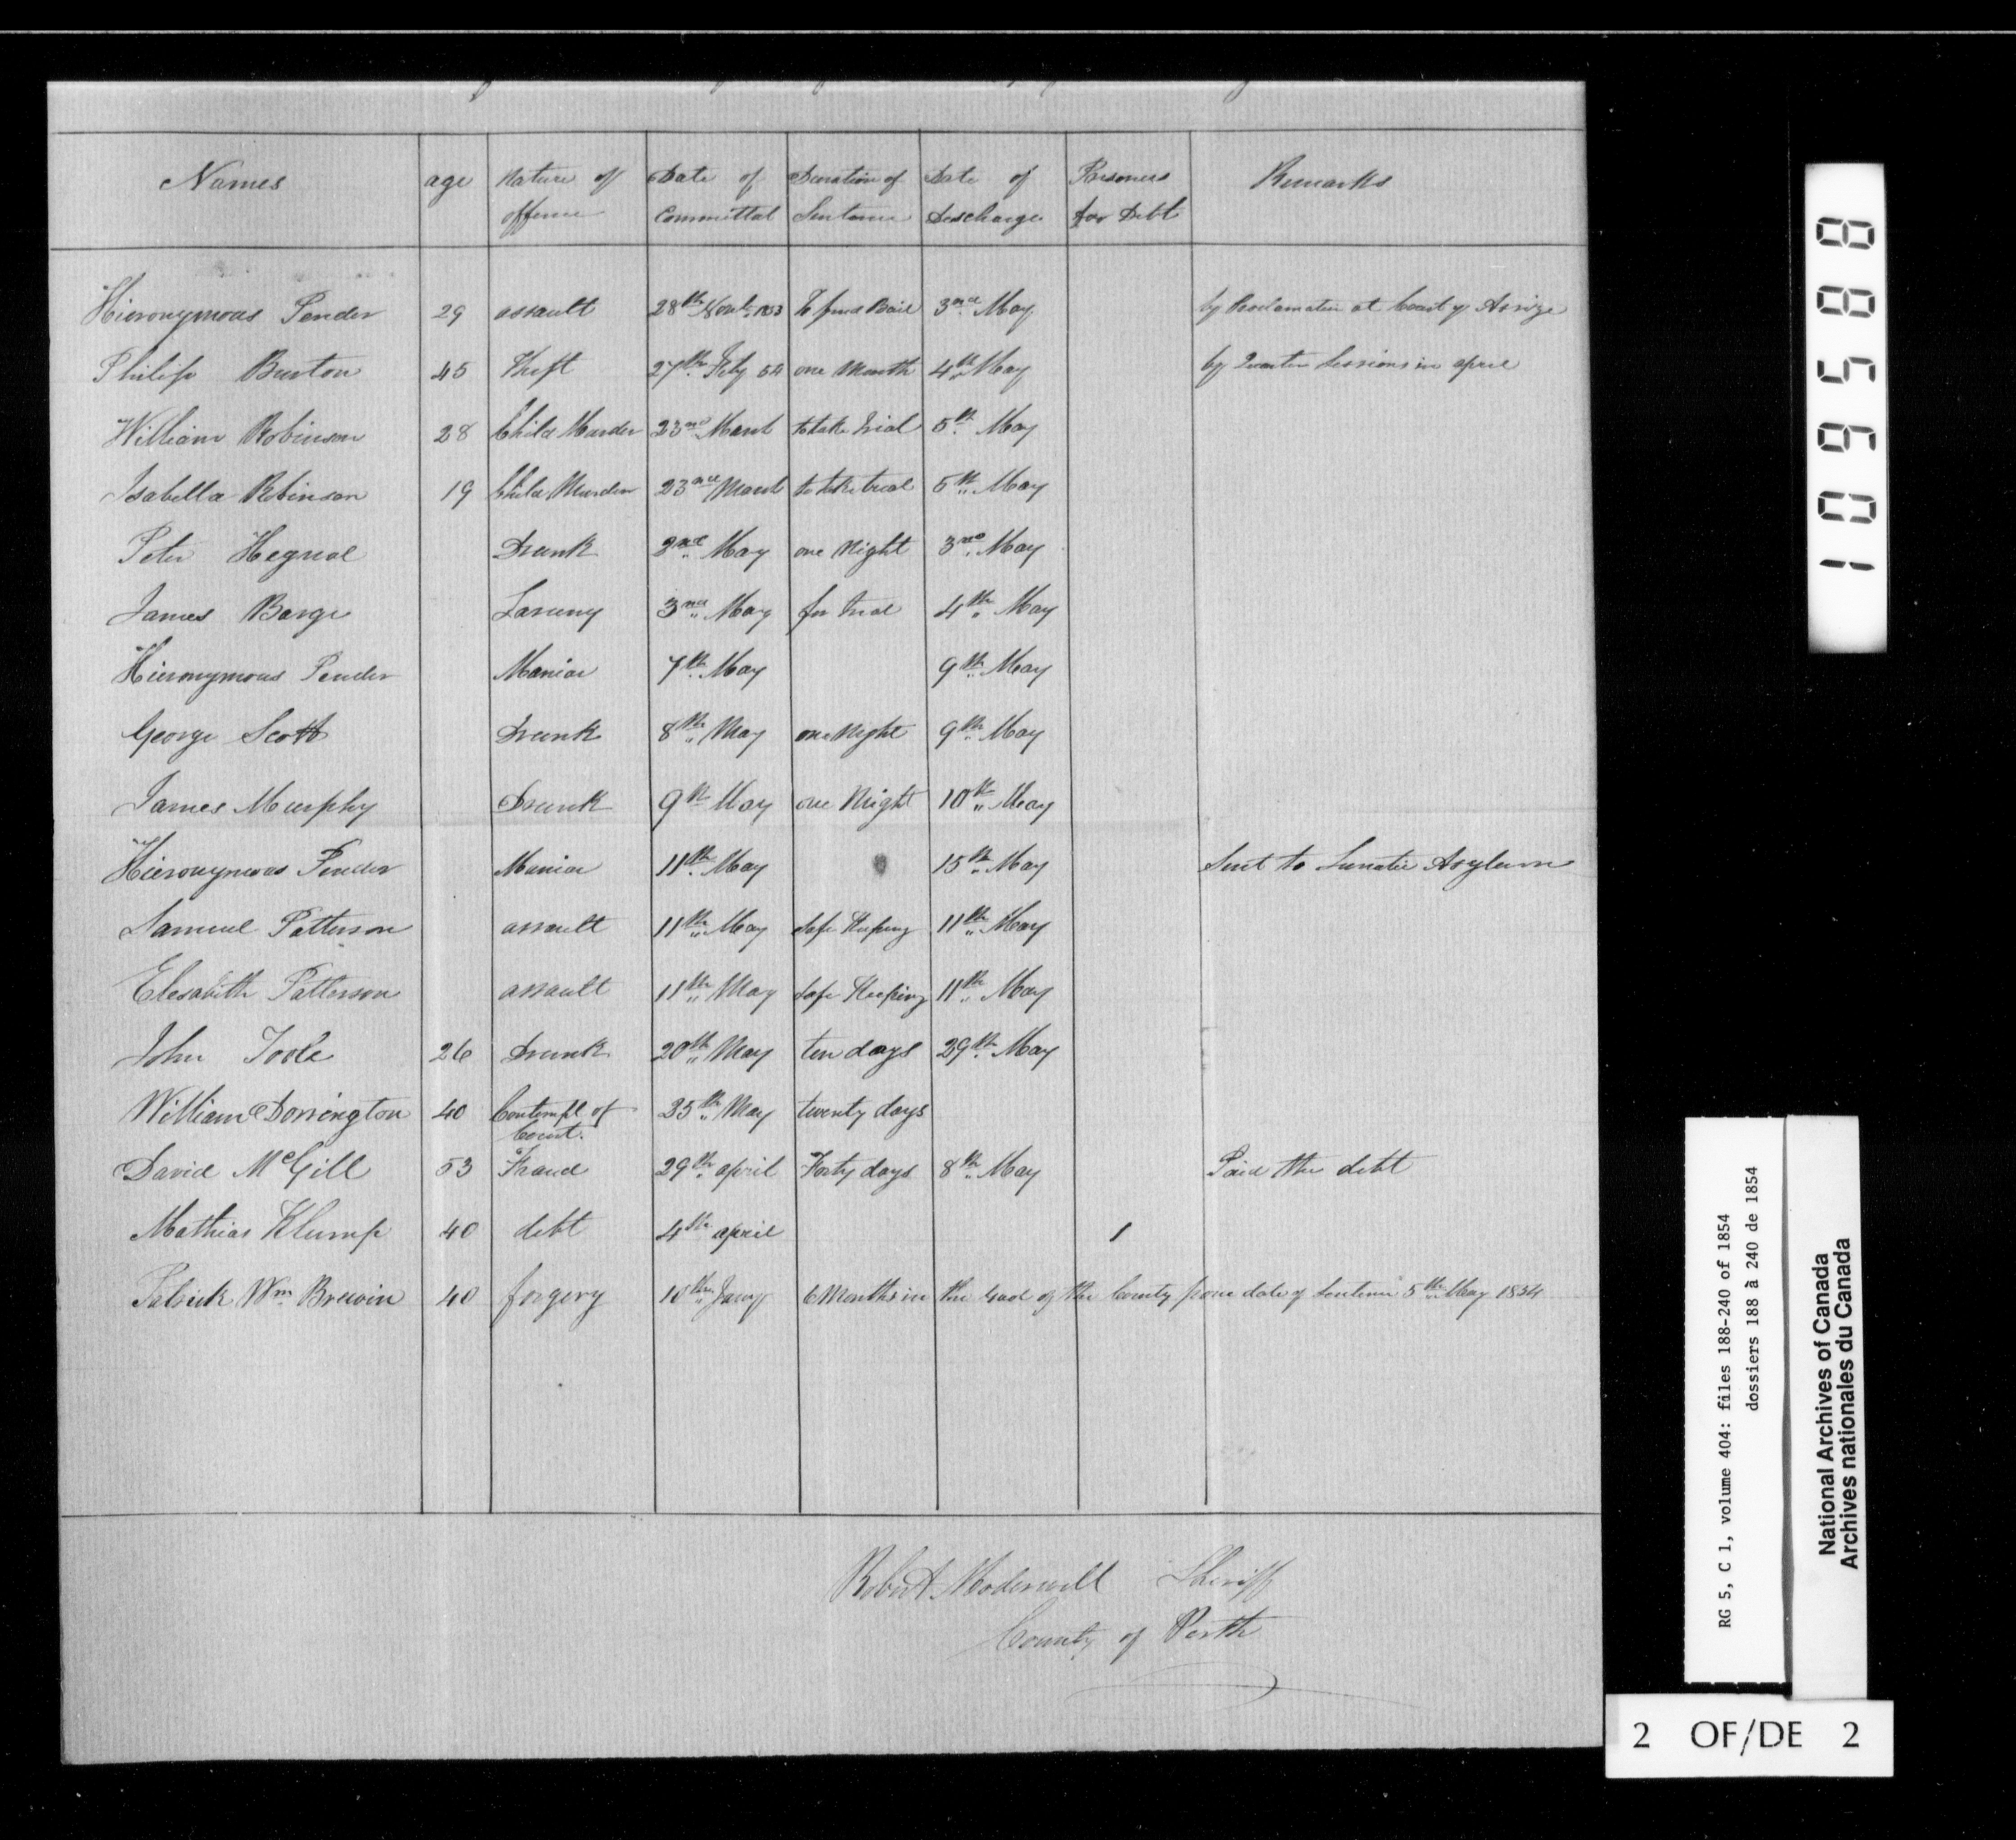 Names age Nature of offence Date of Committal Duration of Sentence Date of Discharge Prisoners for Debt Remarks
Hieronymous Pender 29 assault 28th Novb. 1853 to find Bail 3rd May by Proclamation at Court of Assize
Philip Burton 45 Theft 27th Feby 54 one Month 4th May by Quarter Sessions in april
William Robinson 28 Child Murder 23rd March to take Trial 5th May
Isabella Robinson 19 Child Murder 23rd March to take trial 5th May
Peter Drunk 2nd May one Night 3rd May
James Barge Larceny 3rd May for trial 4th May
Hieronymous Pender Maniac 7th May 9th May
George Scott Drunk 8th May one Night 9th May
James Murphy Drunk 9th May one Night 10th May
Hieronymous Pender Maniac 11th May 15th May Sent to Lunatic Asylum
Samuel Patterson assault 11th May Safe Keeping 11th May
Elesabith Patterson assault 11th May Safe Keeping 11th May
John Toole 26 Drunk 20th May ten days 29th May
William Dorrington 40 Contempt of Court. 25th May twenty days
David McGill 53 Fraud 29th april Forty days 8th May Paid the debt
Mathias Klump 40 debt 4th april 1
Patrick Wm Brewin 40 forgery 10th Jany 6 Months in the Gaol of the County from date of Sentence 5th May 1854
Robert Moderwell Sheriff
County of Perth
109588
RG 5, C 1, volume 404: files 188-240 of 1854
dossiers 188 à 240 de 1854
National Archives of Canada
Archives nationales du Canada
2 OF/DE 2